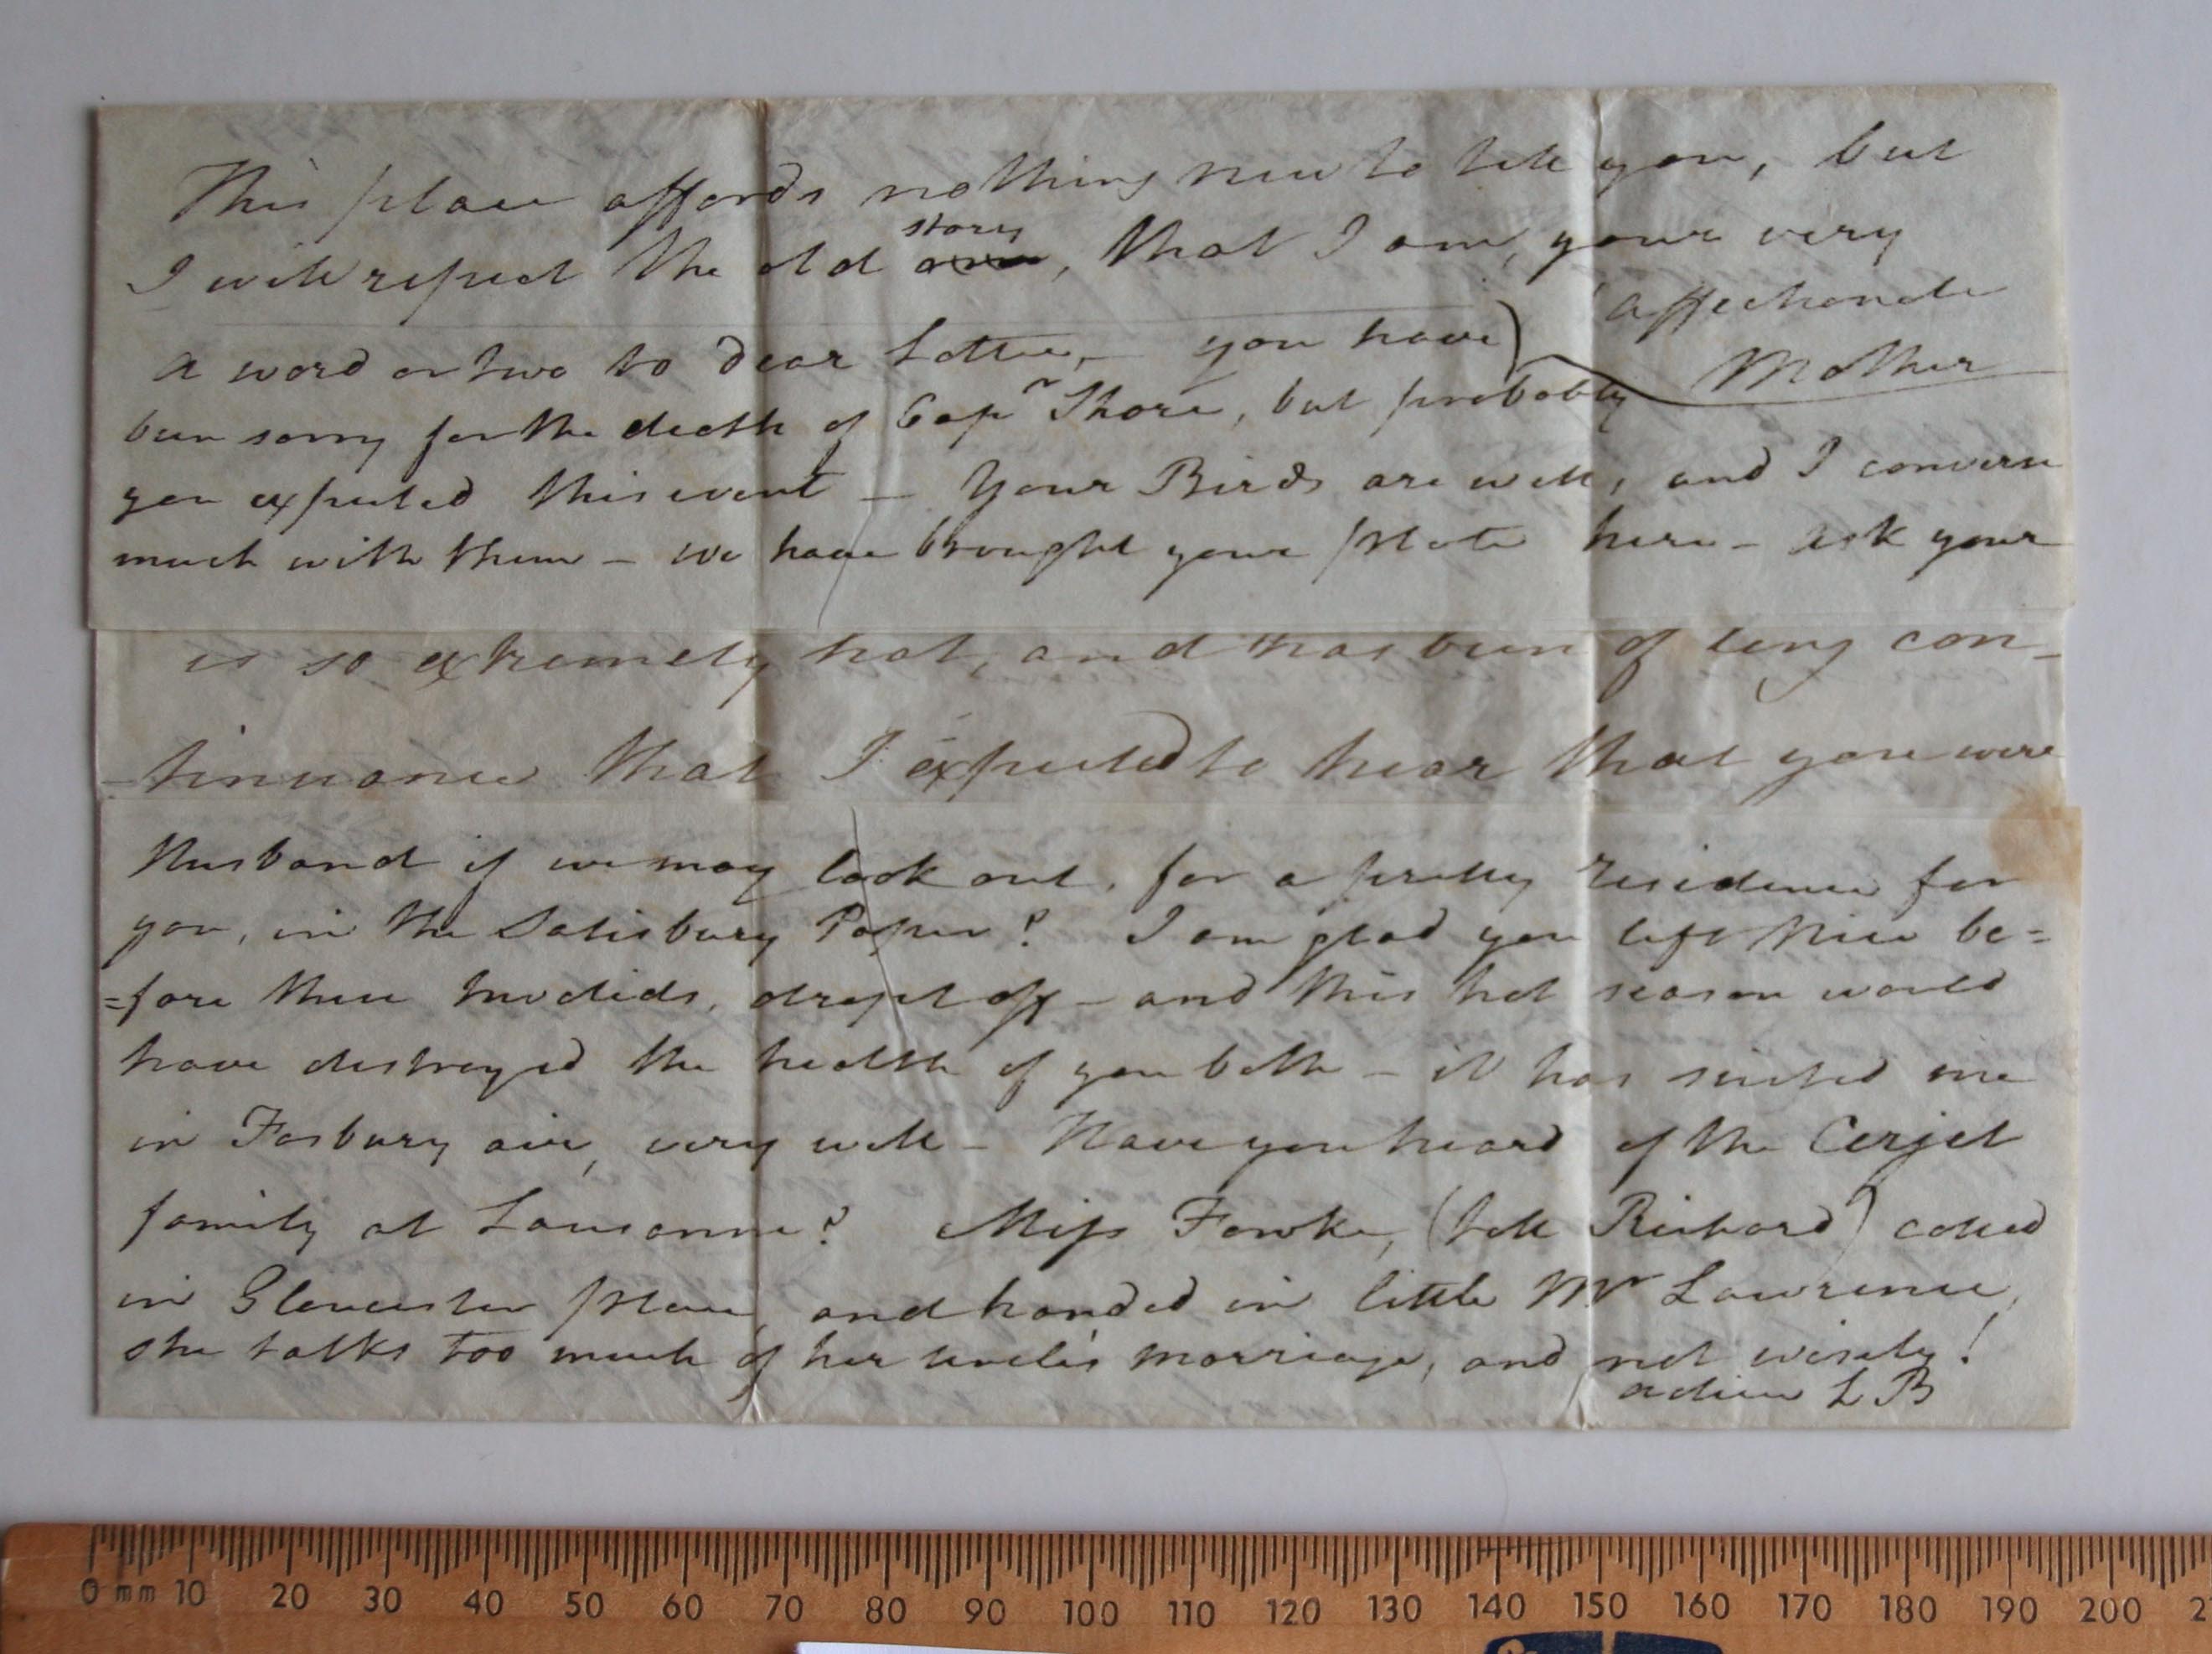 This place affords nothing new to tell you, but
I will repeat the old one story, that I am, your very
affectionate
Mother
A word or two to dear Lottie, — you have
been sorry for the death of Capn Shore, but probably
you expected this event — Your Birds are well, and I converse
much with them — we have brought your plate here — ask your
is so extremely hot, and has been of long con_
_tinuance that I expected to hear that you were
Husband if we may look out, for a pretty residence for
you, in the Salisbury Paper? I am glad you left Nice be=
=fore these Invalids, dropt off — and this hot season would
have destroyed the health of you both — it has suited me
in Fosbury air, very well — Have you heard of the Cerjet
family at Lausanne? Miss Fowke, (tell Richard) called
in Gloucester place, and handed in little Mr Lawrence,
she talks too much of her uncle's marriage, and not wisely!
adieu L B
0 mm 10 20 30 40 50 60 70 80 90 100 110 120 130 140 150 160 170 180 190 200 2